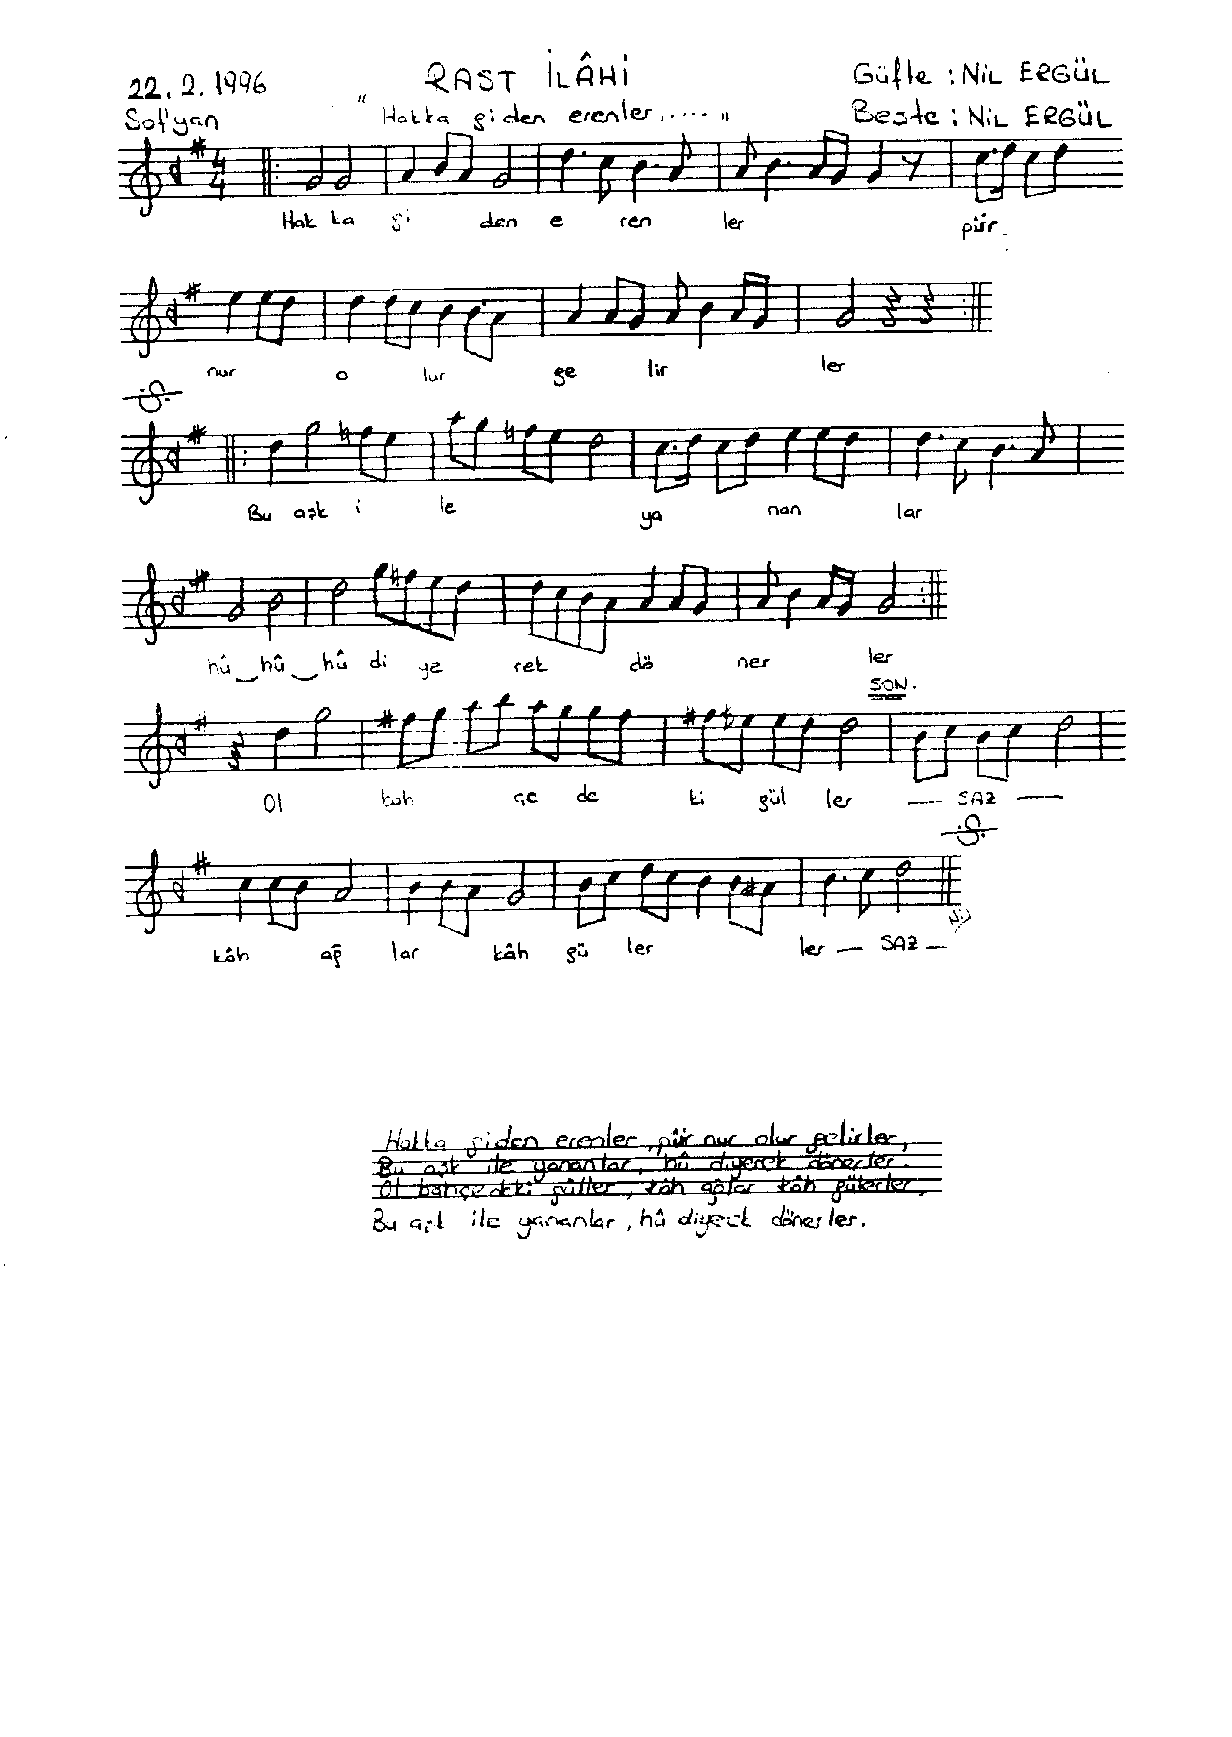 22.2.1996
RAST İLÂHİ
Güfte : NİL ERGÜL
Sofyan
" Hakka giden erenler,..... "
Beste : NİL ERGÜL
4 4
Hak ka gi den e ren ler pür
nur o lur ge lir ler
Bu aşk i le ya nan lar
hû_hû_hû di ye rek dö ner ler
SON.
Ol bah çe de ki gül ler — SAZ —
kâh ağ lar kâh gü ler ler — SAZ —
Nil
Hakka giden erenler, pür nur olur gelirler,
Bu aşk ile yananlar, hû diyerek dönerler.
Ol bahçedeki güller, kâh ağlar kâh gülerler,
Bu aşk ile yananlar, hû diyerek dönerler.